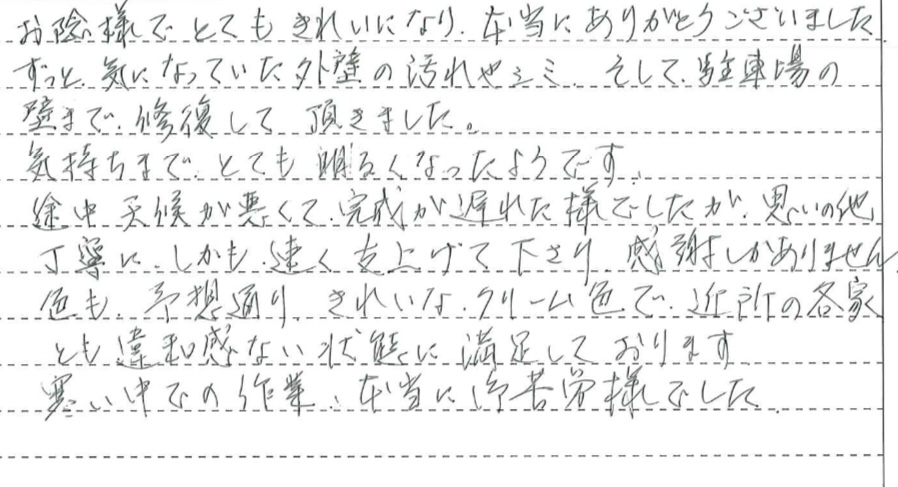 お陰様で とても きれいになり、本当に ありがとうございました
ずっと、気になっていた 外壁の 汚れやシミ、そして、駐車場の
壁まで、修復して 頂きました。
気持ちまで、とても 明るくなったようです。
途中 天候が 悪くて、完成が 遅れた 様でしたが、思いの他
丁寧に、しかも、速く 仕上げて 下さり、感謝しかありません
色も、予想通り、きれいな、クリーム色で、近所の各家
とも 違和感ない 状態に 満足して おります
寒い中での 作業、本当に 御苦労様でした。